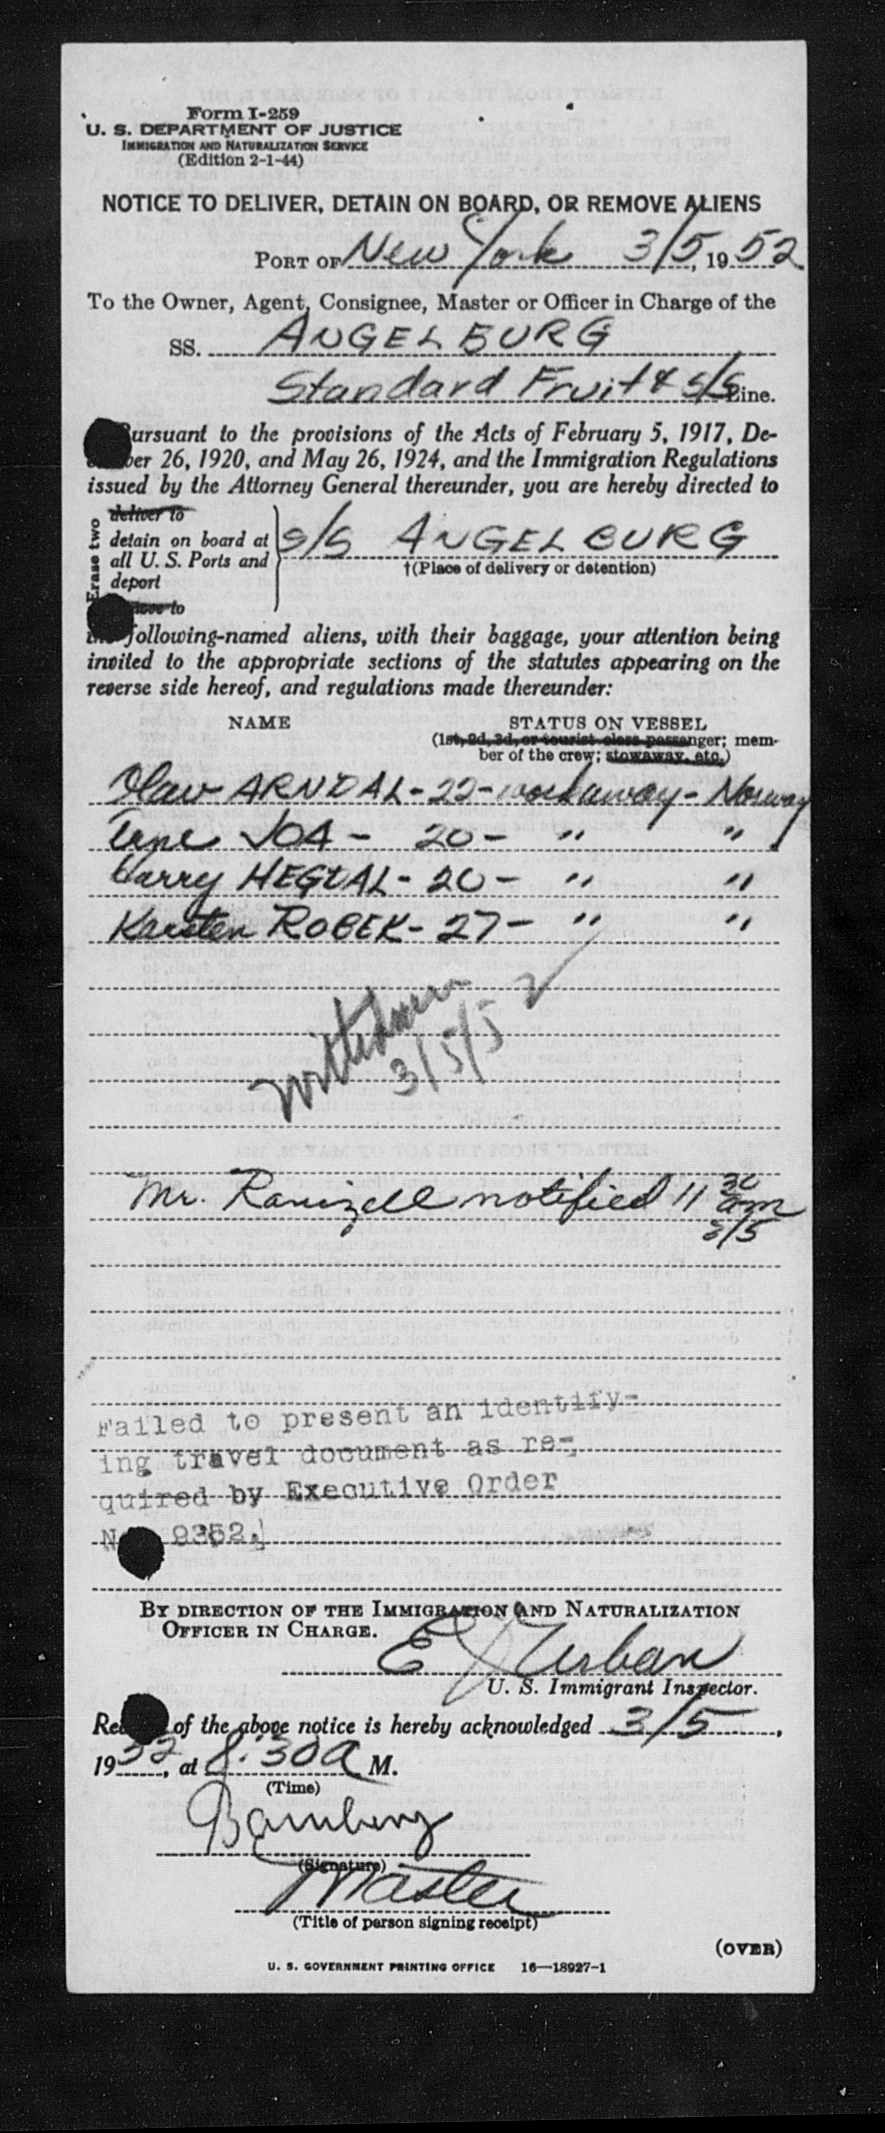 Form I-259
U. S. DEPARTMENT OF JUSTICE
IMMIGRATION AND NATURALIZATION SERVICE
(Edition 2-1-44)
NOTICE TO DELIVER, DETAIN ON BOARD, OR REMOVE ALIENS
PORT OF New York 3/5, 1952
To the Owner, Agent, Consignee, Master or Officer in Charge of the
SS. ANGELBURG
Standard Fruit & S/S Line.
Pursuant to the provisions of the Acts of February 5, 1917, De-
ber 26, 1920, and May 26, 1924, and the Immigration Regulations
issued by the Attorney General thereunder, you are hereby directed to
Erase two
deliver to
detain on board at
all U. S. Ports and
deport
remove to
S/S ANGELBURG
†(Place of delivery or detention)
the following-named aliens, with their baggage, your attention being
invited to the appropriate sections of the statutes appearing on the
reverse side hereof, and regulations made thereunder:
NAME STATUS ON VESSEL
(1st, 2d, 3d, or tourist class passenger; mem-
ber of the crew; stowaway, etc.)
Olav ARNDAL - 22 - workaway - Norway
JOA - 20 - " "
Harry HEGDAL - 20 - " "
Karsten ROBEK - 27 - " "
Withdrawn
3/5/52
Mr. notified 11 30 am
3/5
Failed to present an identify-
ing travel document as re-
quired by Executive Order
No. 9352.
BY DIRECTION OF THE IMMIGRATION AND NATURALIZATION
OFFICER IN CHARGE.
E J Urban
U. S. Immigrant Inspector.
Re of the above notice is hereby acknowledged 3/5,
1952, at 8:30 A M.
(Time)
Bamberg
(Signature)
Master
(Title of person signing receipt)
(OVER)
U. S. GOVERNMENT PRINTING OFFICE 16—18927-1